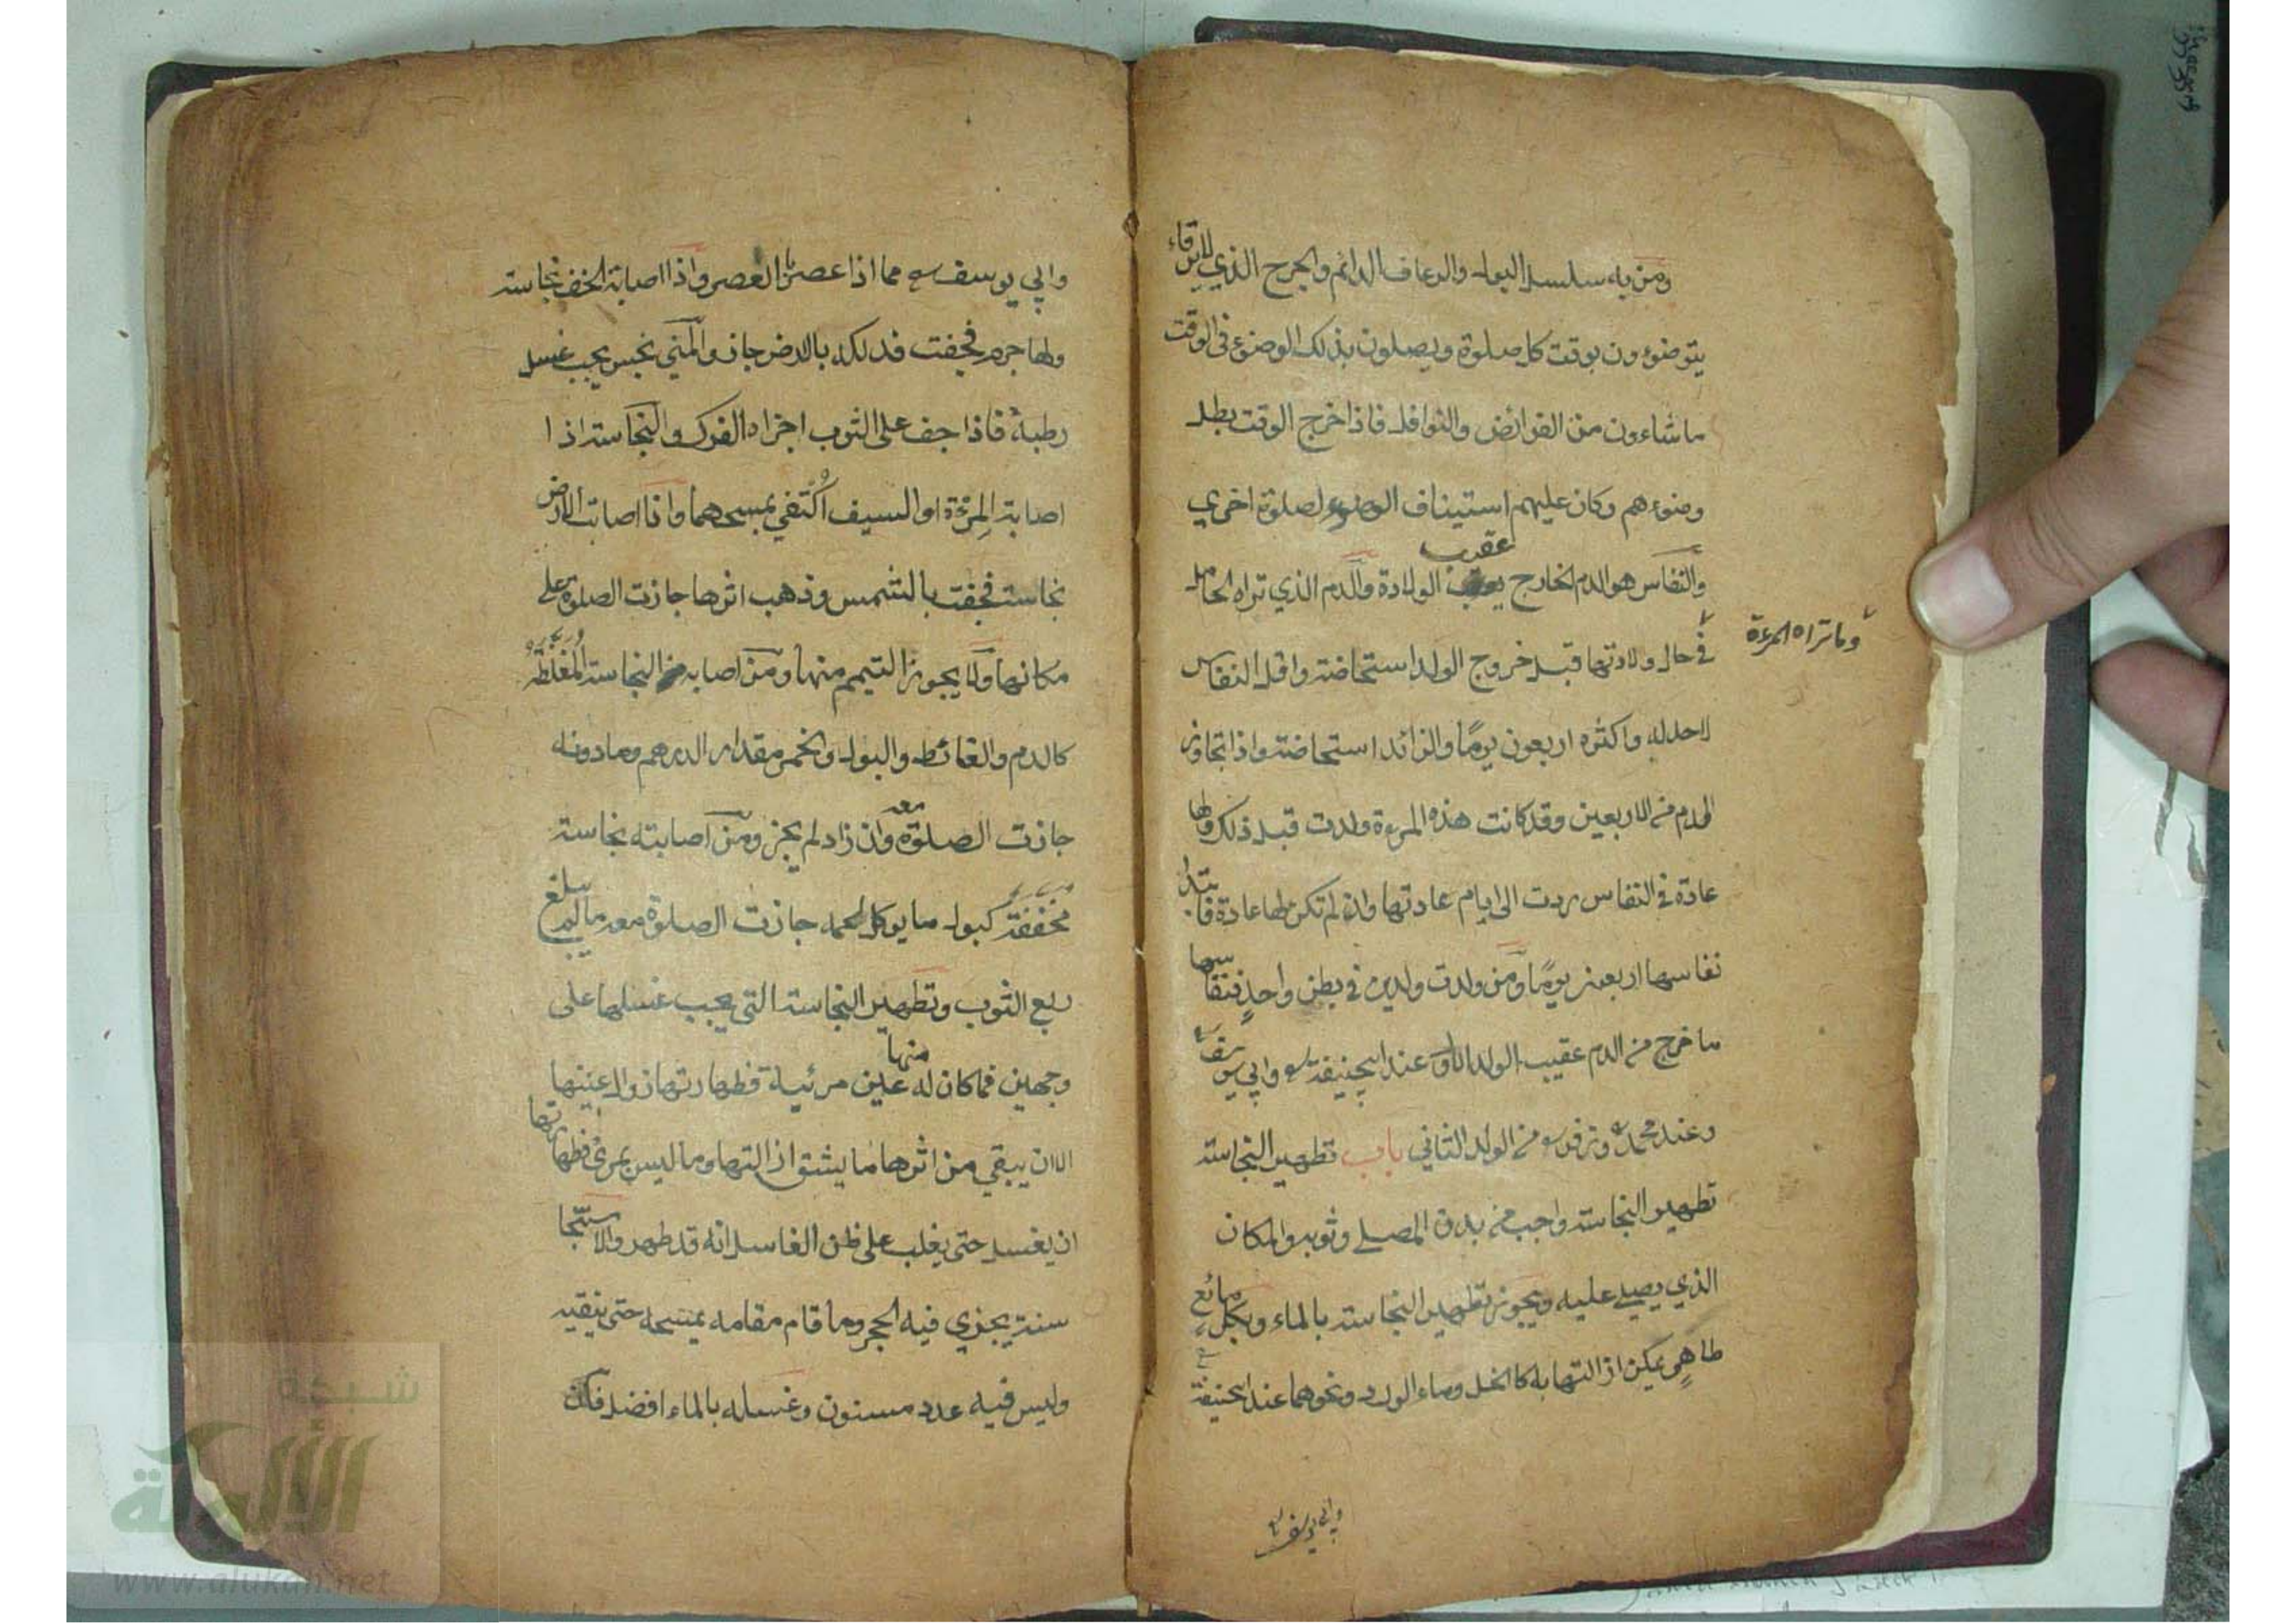 ومن به سلسل البول والرعاف الدائم والجرح الذي لا يرقاء
يتوضوءون بوقت كل صلوة ويصلون بذلك الوضوء فى الوقت
ما شاءون من الفرائض والنوافل فاذا خرج الوقت بطل
وضوءهم وكان عليهم استيناف الوضوء لصلوة اخري
والنفاس هو الدم الخارج عقيب الولادة والدم الذي تراه الحامل
وما تراه المرءة
في حال ولادتها قبل خروج الولد استحاضة واقل النفاس
لا حد له واكثره اربعون يومًا والزائد استحاضة واذا تجاوز
الدم من الاربعين وقد كانت هذه المرءة ولدت قبل ذلك ولها
عادة في النفاس ردت الى ايام عادتها وان لم تكن لها عادة فابتداء
نفاسها اربعين يومًا ومن ولدت ولدين في بطن واحدٍ فنفاسها
ما خرج من الدم عقيب الولد الاول عند ابيحنيفة وابي يوسف
وعند محمد وزفر من الولد الثاني باب تطهير النجاسة
تطهير النجاسة واجب من بدن المصلي وثوبه والمكان
الذي يصلي عليه ويجوز تطهير النجاسة بالماء وبكل مائع
طاهرٍ يمكن ازالتها به كالخل وماء الورد ونحوهما عند ابيحنيفة
وابي يوسف
وابي يوسف مما اذا عصر بالعصر واذا اصابة الخف نجاسة
ولها جرم فجفت فدلكه بالارض جاز والمني نجس يجب غسل
رطبة فاذا جف على الثوب اجزاه الفرك والنجاسة اذا
اصابة المرءة او السيف اُكتفي بمسحهما واذا اصابت الارض
نجاسة فجفت بالشمس وذهب اثرها جازت الصلوة على
مكانها ولا يجوز التيمم منها ومن اصابه من النجاسة المُغَلَّظَةُ
كالدم والغائط والبول والخمر مقدار الدرهم وما دونه
جازت الصلوة معه وان زاد لم يجز ومن اصابته نجاسة
مخففة كبول ما يوكل لحمه جازت الصلوة معه ما لم يبلغ
ربع الثوب وتطهير النجاسة التى يجب غسلها على
وجهين فما كان له منها عين مرئية فطهارتها زوال عينها
الا ان يبقي من اثرها ما يشق ازالتها وما ليس بمرئ فطهارتها
ان يغسل حتى يغلب على ظن الغاسل انه قد طهر والاستنجا
سنة يجزي فيه الحجر وما قام مقامه يمسحه حتى ينقيه
وليس فيه عدد مسنون وغسله بالماء افضل فان
شبكة
الألوكة
www.alukah.net